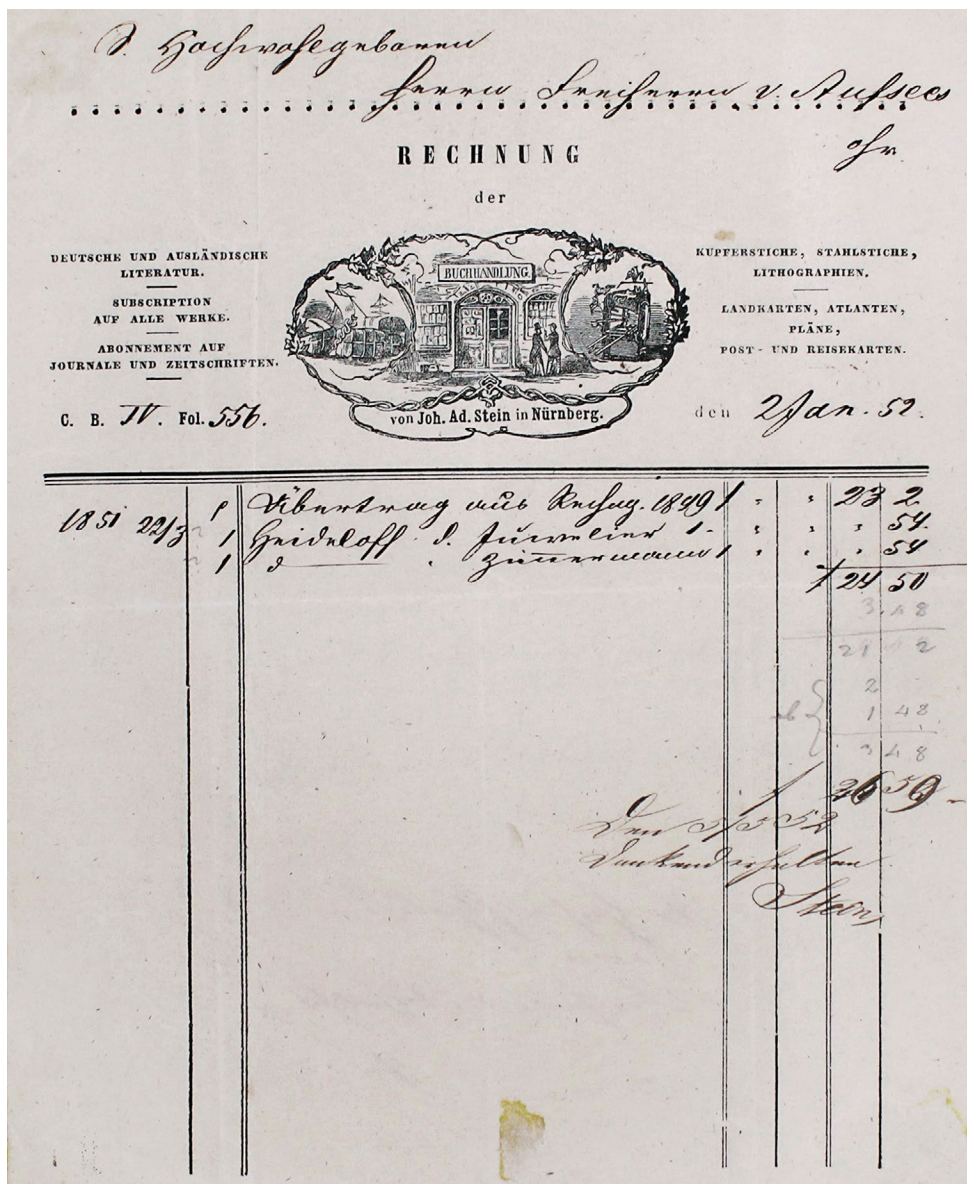 S. Hochwohlgeboren
Herrn Freiherrn v. Aufsees
RECHNUNG
der
DEUTSCHE UND AUSLÄNDISCHE
LITERATUR.
SUBSCRIPTION
AUF ALLE WERKE.
ABONNEMENT AUF
JOURNALE UND ZEITSCHRIFTEN.
BUCHHANDLUNG
von Joh. Ad. Stein in Nürnberg.
KUPFERSTICHE, STAHLSTICHE,
LITHOGRAPHIEN.
LANDKARTEN, ATLANTEN,
PLÄNE,
POST- UND REISEKARTEN.
C. B. IV. Fol. 556.
den 2 Jan. 52.
Übertrag aus Rechng. 1849 23 2
1851 22/3 1 Heideloff d. Juwelier 1 54
1 Zimmermann 1 54
24 50
3 48
21 2
2
ab 1 48
3 48
Den 5/5 52
Dankend erhalten
Stein